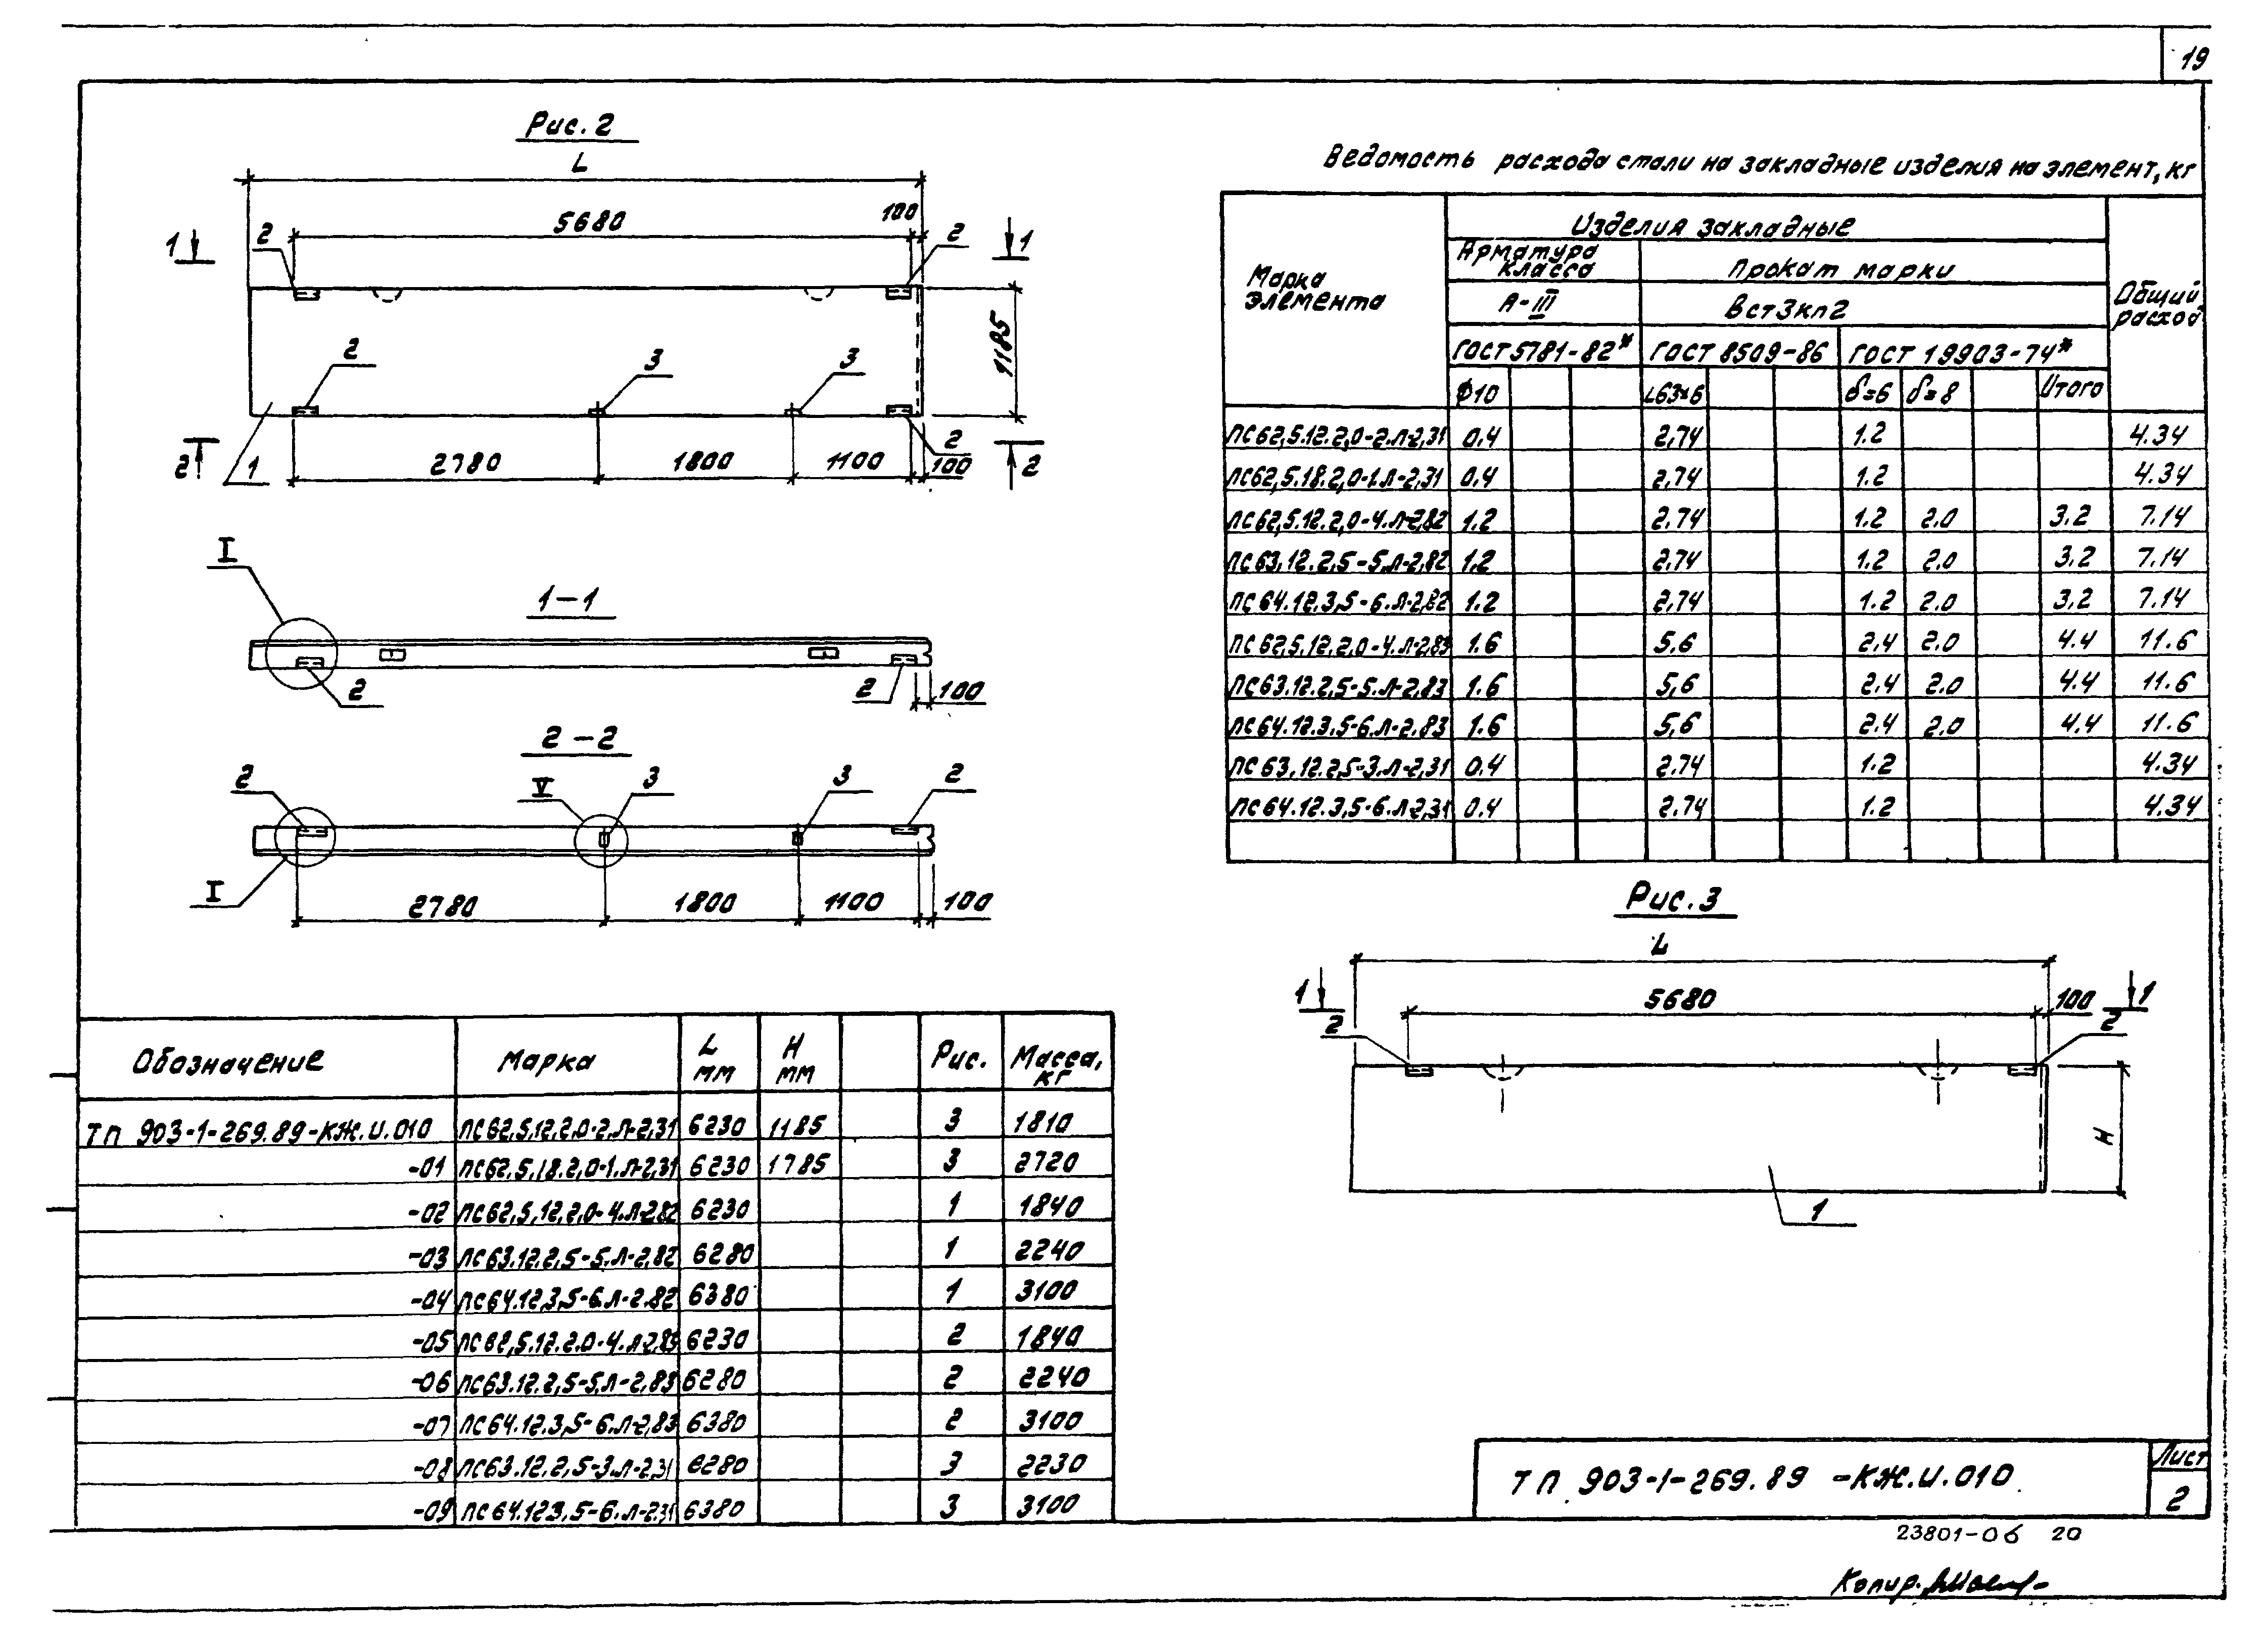 19
Рис. 2
L
5680
100
1
2
2
1
1185
2
3
3
2
1
2780
1800
1100
100
2
2
I
1-1
2
2
100
2-2
2
V
3
3
2
I
2780
1800
1100
100
Ведомость расхода стали на закладные изделия на элемент, кг
Марка элемента
Изделия закладные
Общий расход
Арматура класса
Прокат марки
А-III
Вст3кп2
ГОСТ 5781-82* ГОСТ 8509-86 ГОСТ 19903-74*
ϕ10 L63×6 δ=6 δ=8 Итого
ПС62,5.12.2,0-2.Л-2,31 0.4 2,74 1.2 4.34
ПС62,5.18.2,0-1.Л-2,31 0.4 2,74 1.2 4.34
ПС62,5.12.2,0-4.Л-2,82 1.2 2.74 1.2 2.0 3.2 7.14
ПС63.12.2,5-5.Л-2,82 1.2 2.74 1.2 2.0 3.2 7.14
ПС64.12.3,5-6.Л-2,82 1.2 2,74 1.2 2.0 3,2 7.14
ПС62,5.12.2,0-4.Л-2,83 1.6 5,6 2,4 2.0 4.4 11.6
ПС63.12.2,5-5.Л-2,83 1.6 5,6 2.4 2.0 4.4 11.6
ПС64.12.3,5-6.Л-2,83 1.6 5,6 2.4 2.0 4.4 11.6
ПС63.12.2,5-3.Л-2,31 0.4 2.74 1.2 4.34
ПС64.12.3,5-6.Л-2,31 0.4 2.74 1.2 4.34
Рис. 3
L
5680
100
1
2
2
1
H
1
Обозначение Марка L мм H мм Рис. Масса, кг
ТП 903-1-269.89-КЖ.И.010 ПС62,5.12.2,0-2.Л-2,31 6230 1185 3 1810
-01 ПС62,5.18.2,0-1.Л-2,31 6230 1785 3 2720
-02 ПС62,5.12.2,0-4.Л-2,82 6230 1 1840
-03 ПС63.12.2,5-5.Л-2,82 6280 1 2240
-04 ПС64.12.3,5-6.Л-2,82 6380 1 3100
-05 ПС62,5.12.2,0-4.Л-2,83 6230 2 1840
-06 ПС63.12.2,5-5.Л-2,83 6280 2 2240
-07 ПС64.12.3,5-6.Л-2,83 6380 2 3100
-08 ПС63.12.2,5-3.Л-2,31 6280 3 2230
-09 ПС64.12.3,5-6.Л-2,31 6380 3 3100
ТП 903-1-269.89 -КЖ.И.010
Лист
2
23801-06 20
Копир.